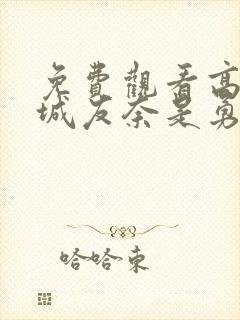 免費觀看高
城友奈是勇
哈哈東